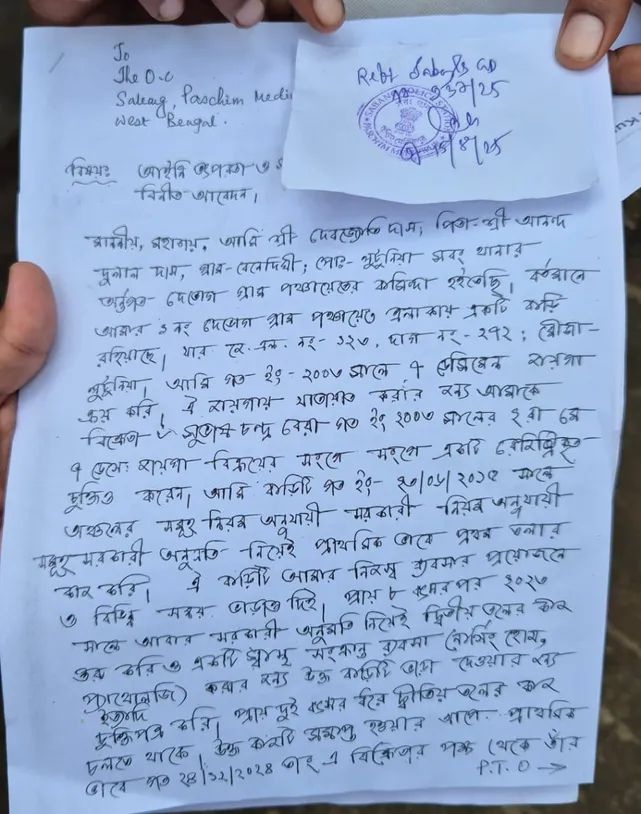 To
The O.C
Sabang, Paschim Medi
West Bengal.
Recd Sabang PS
15/8/25
SABANG POLICE STATION
PASCHIM MEDINIPUR
বিষয়ঃ আইনি তৎপরতা ও
বিনীত আবেদন।
মাননীয়, মহাশয়, আমি শ্রী দেবজ্যোতি দাস, পিতা-শ্রী আনন্দ
দুলাল দাস, গ্রাম- বেনেদিঘী; পোঃ- লুটুনিয়া সবং থানার
অর্ন্তগত দেভোগ গ্রাম পঞ্চায়েতের বাসিন্দা হইতেছি। বর্তমানে
আমার ১ নং দেভোগ গ্রাম পঞ্চায়েত এলাকায় একটি বাড়ি
রহিয়াছে। যার জে. এল. নং- ১২৩, দাগ নং- ২৭২; মৌজা-
লুটুনিয়া। আমি গত ইং- ২০০৩ সালে ৭ ডেসিমেল জায়গা
ক্রয় করি। ঐ জায়গায় যাতায়াত করার জন্য আমাকে
বিক্রেতা সুভাষ চন্দ্র বেরা গত ইং ২০০৩ সালের ২রা মে
৭ ডেসেঃ জায়গা বিক্রয়ের সহিত একটি রেজিস্ট্রিকৃত
চুক্তিও করেন। আমি বাড়িটি গত ইং- ২০১৫ সালে
অঞ্চলের সমস্ত নিয়ম অনুযায়ী সরকারী নিয়ম অনুযায়ী
সমস্ত সরকারী অনুমতি নিয়েই প্রাথমিক ভাবে প্রথম তলার
কাজ করি। ঐ বাড়িটি আমার নিজস্ব ব্যবসার প্রয়োজনে
ও বিভিন্ন সময় ভাড়াও দিই। প্রায় ৮ বছর পর ২০২৩
সালে আবার সরকারী অনুমতি নিয়েই দ্বিতীয় তলের কাজ
শুরু করি ও একটি স্বাস্থ্য সংক্রান্ত ব্যবসা (নার্সিং হোম,
প্যাথোলজি) করার জন্য উক্ত বাড়িটি ভাড়া দেওয়ার জন্য
ইত্যাদি
চুক্তিপত্র করি। প্রায় দুই বছর ধরে দ্বিতীয় তলের কাজ
চলতে থাকে। উক্ত কাজটি সমাপ্ত হওয়ার আগে প্রাথমিক
ভাবে গত ২৪/১২/২০২৪ তাং এ বিক্রেতার পক্ষ থেকে তাঁর
P.T.O →